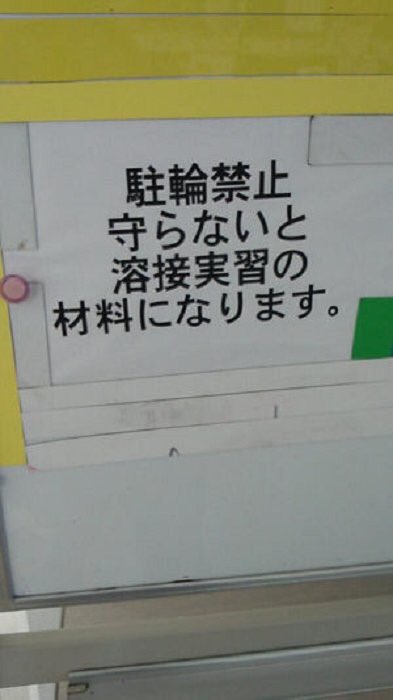 駐輪禁止
守らないと
溶接実習の
材料になります。